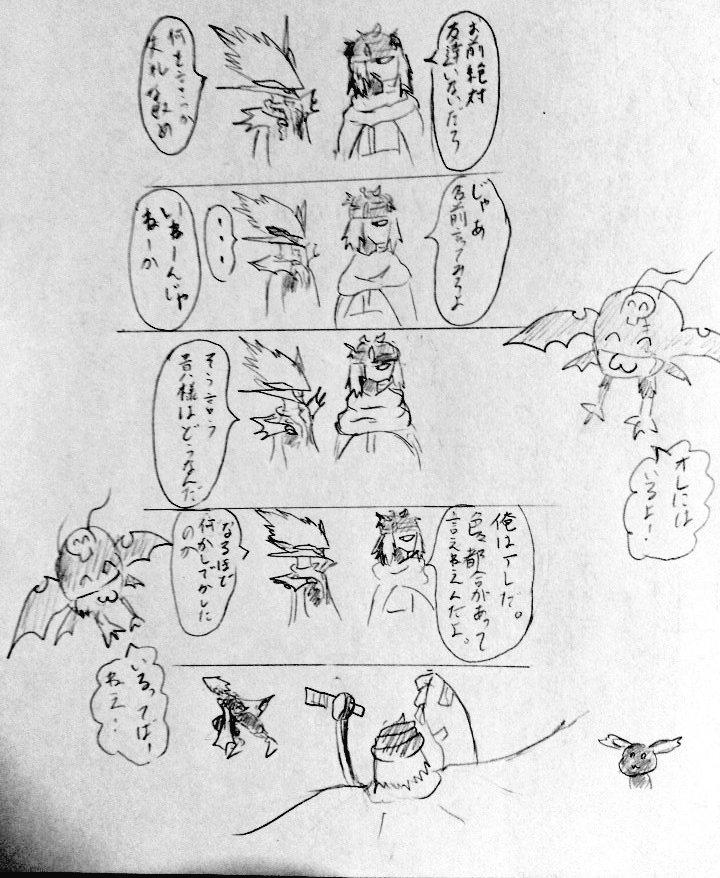 お前絶対
友達いないだろ
何を言うか
じゃあ
名前言ってみろよ
・・・
いねーんじゃ
ねーか
そう言う
貴様はどうなんだ
オレには
いるよー!
俺はアレだ。
色々都合があって
言えねえんだよ。
なるほど
何かしでかした
のか
いるってば、
ねえ!